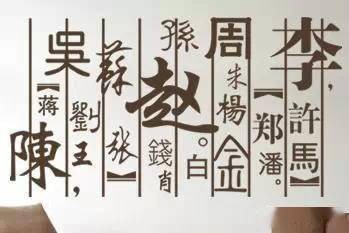 李，
【許馬
【郑潘。
周
朱楊
金
孫
赵。
白
錢肖
蘇
张】
劉王，
吳
【蒋】
陳